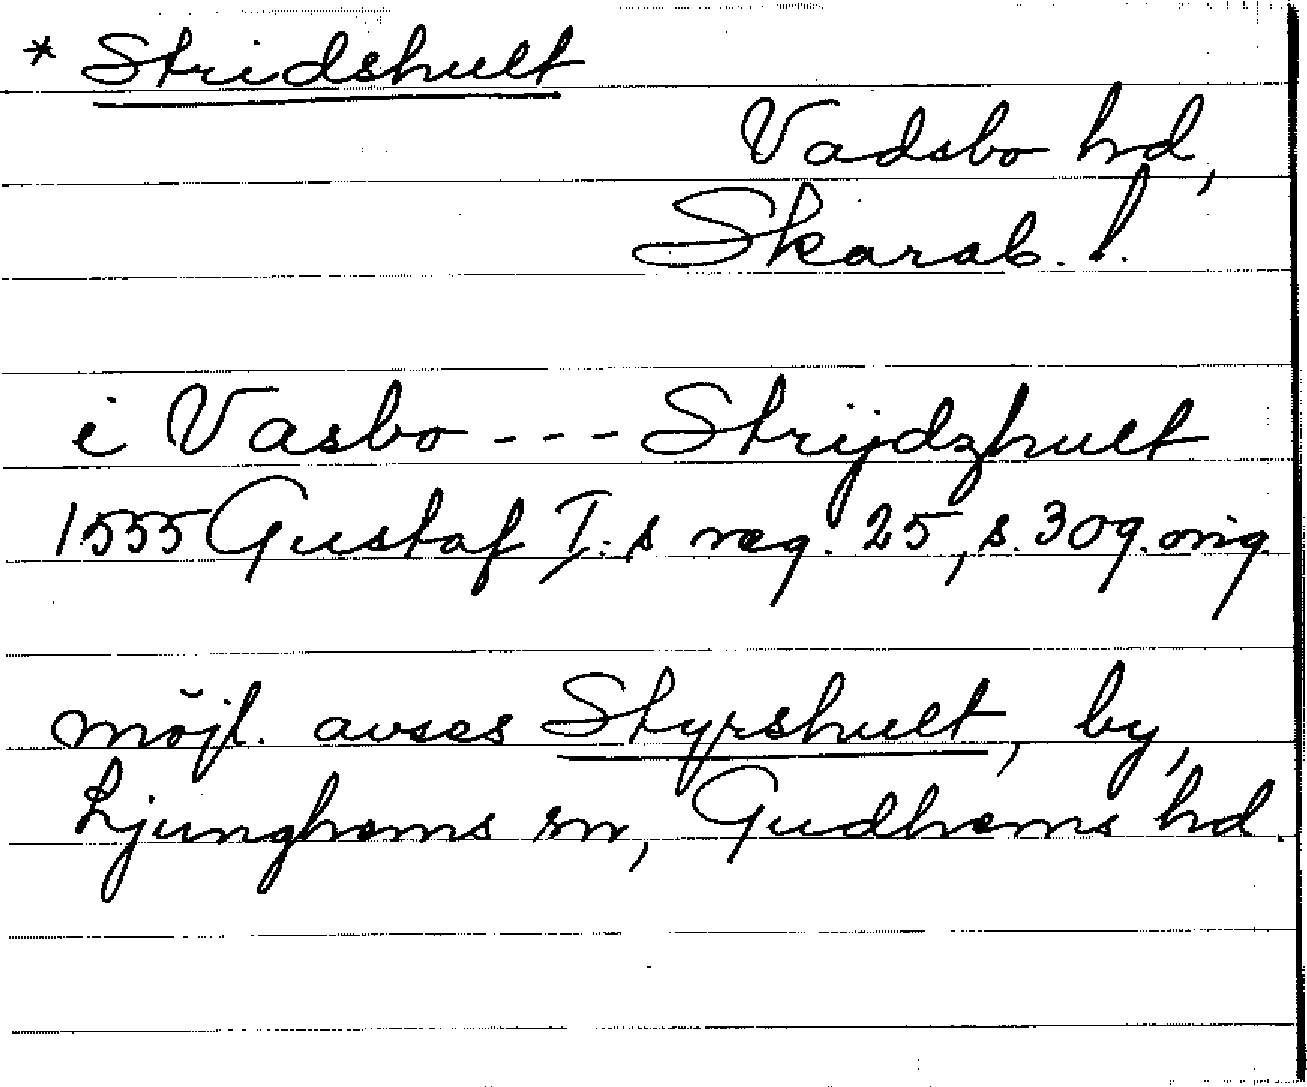 * Stridshult
Vadsbo hd,
Skarab. l.
i Vasbo --- Strijdzhult
1555 Gustaf I:s reg. 25, s. 309. orig.
möjl. avses Styrshult, by,
Ljunghems sn, Gudhems hd.